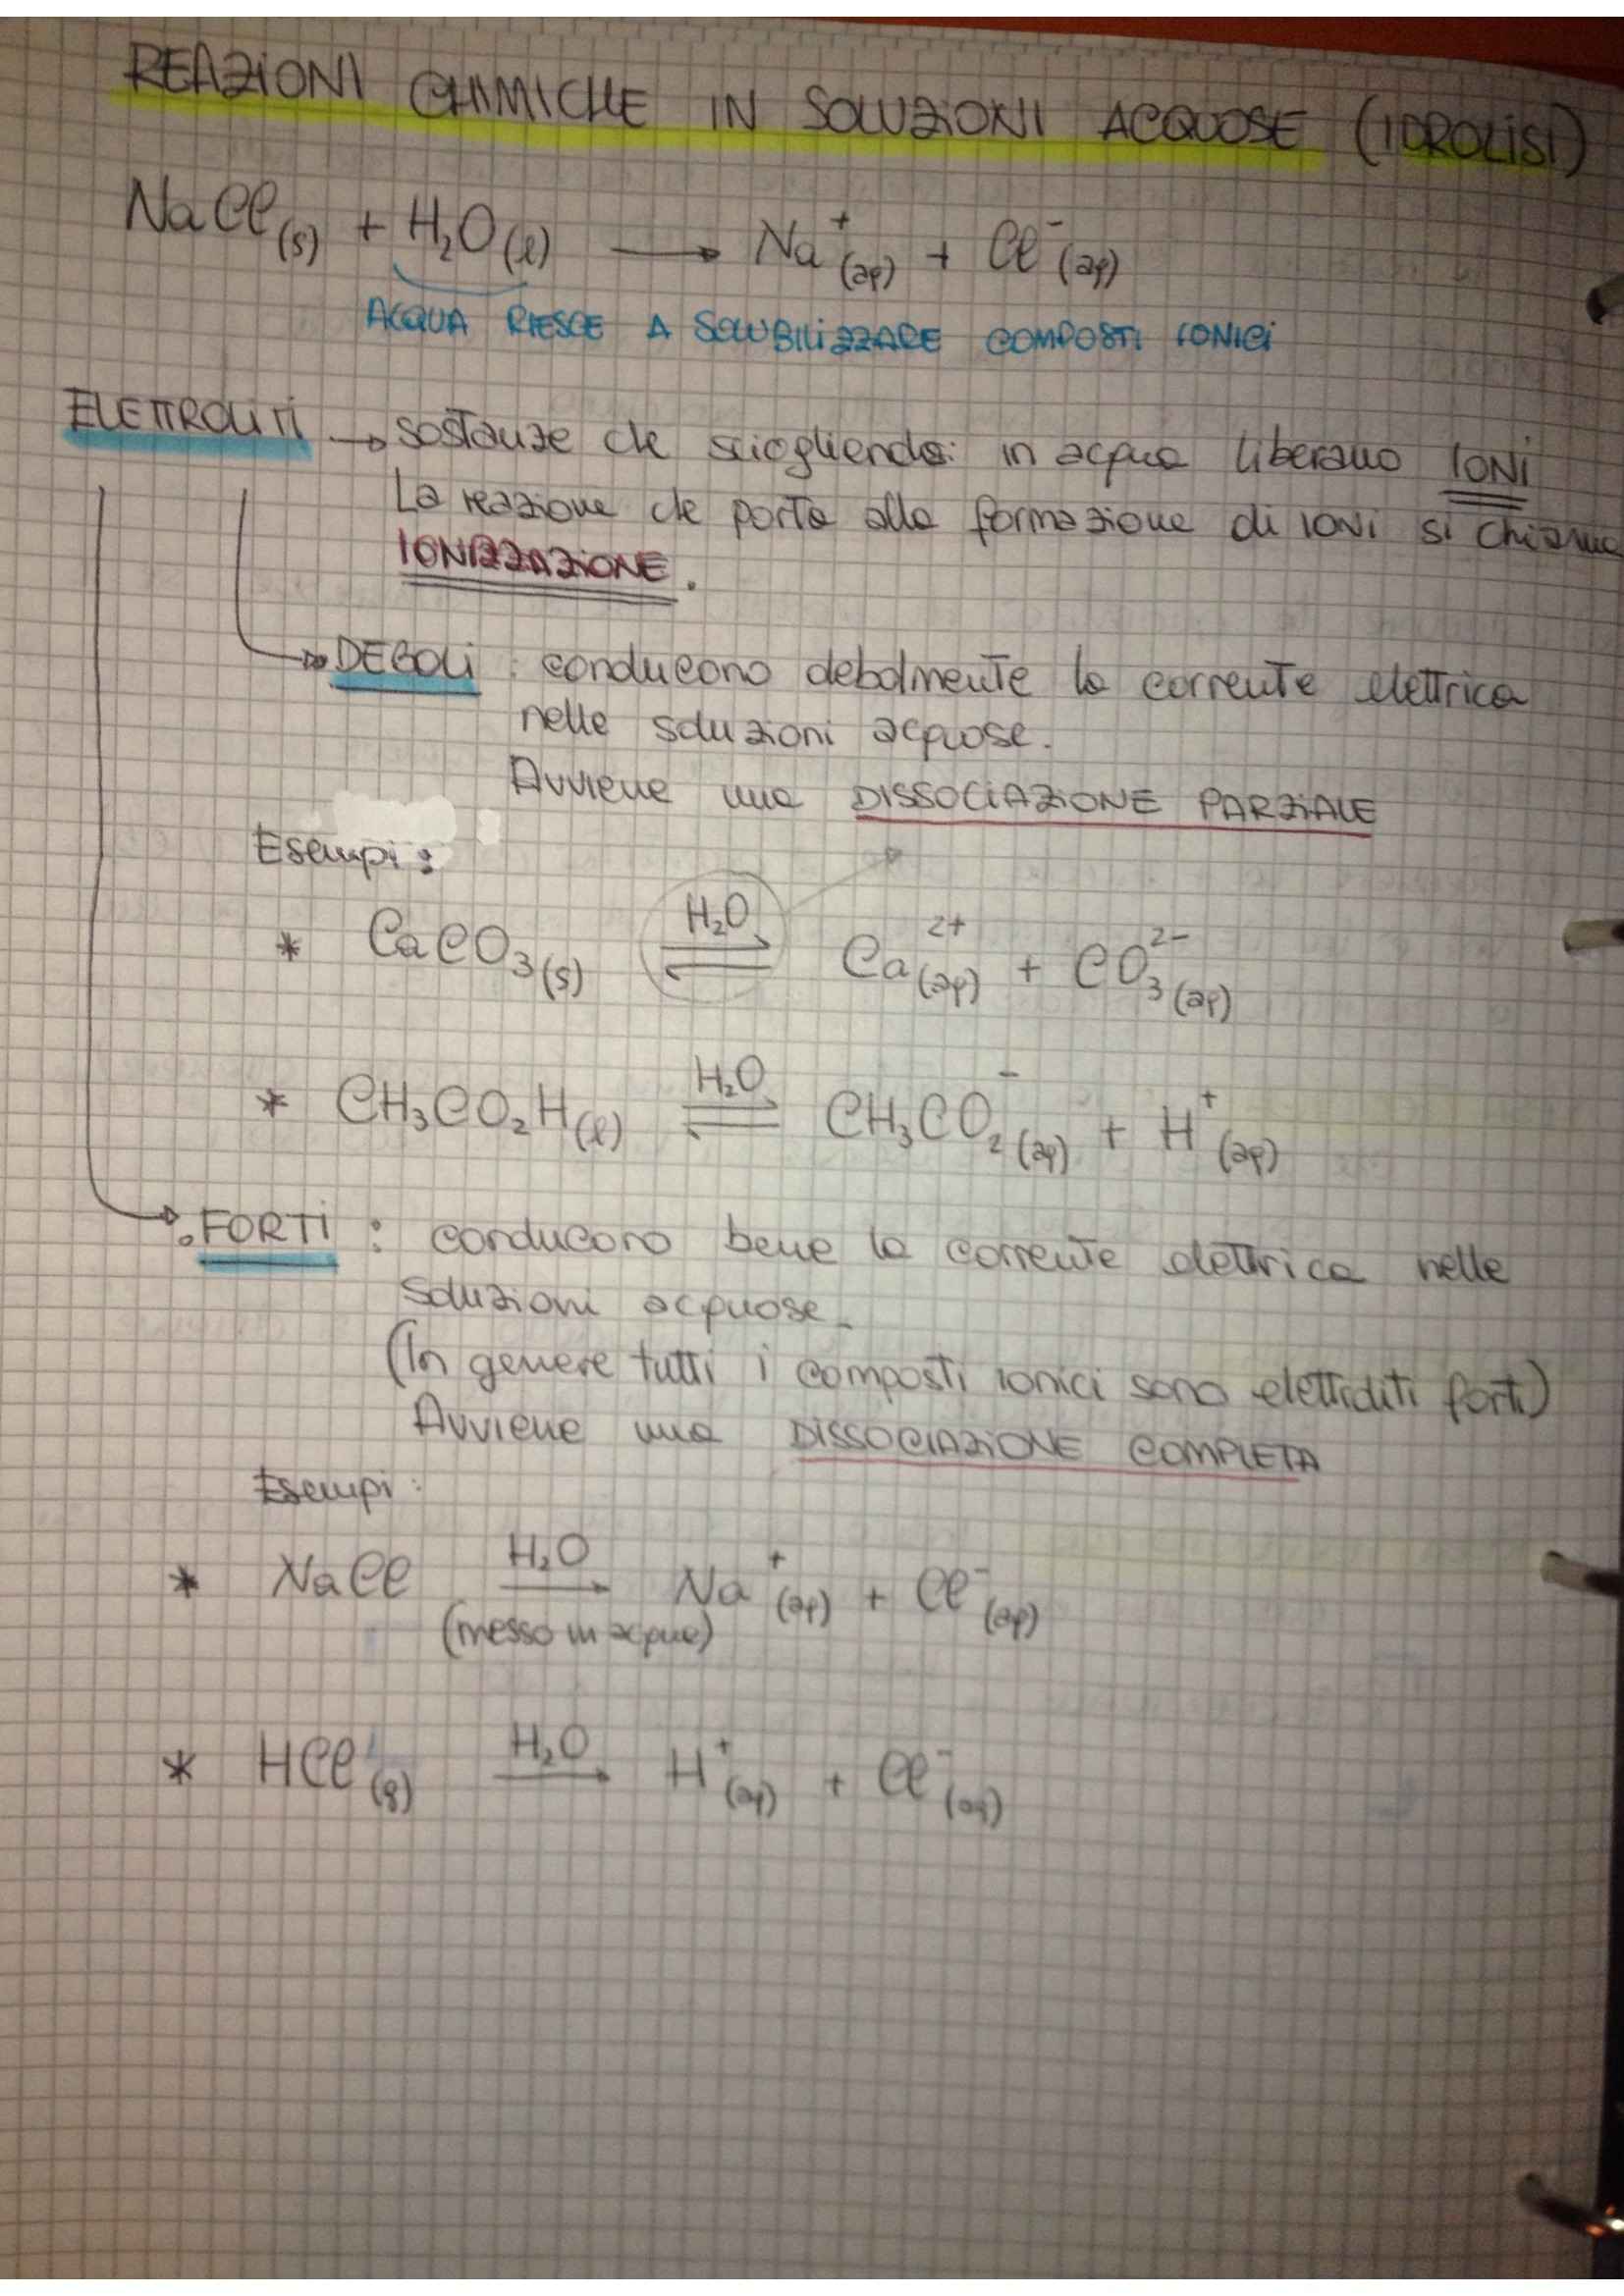 REAZIONI CHIMICHE IN SOLUZIONI ACQUOSE (IDROLISI)
NaCl(s) + H₂O(l) → Na⁺(aq) + Cl⁻(aq)
ACQUA RIESCE A SOLUBILIZZARE COMPOSTI IONICI
ELETTROLITI → sostanze che sciogliendosi in acqua liberano IONI
La reazione che porta alla formazione di IONI si chiama
IONIZZAZIONE.
→ DEBOLI : conducono debolmente la corrente elettrica
nelle soluzioni acquose.
Avviene una DISSOCIAZIONE PARZIALE
Esempi :
* CaCO₃(s) ⇌ H₂O Ca²⁺(aq) + CO₃²⁻(aq)
* CH₃CO₂H(l) ⇌ H₂O CH₃CO₂⁻(aq) + H⁺(aq)
→ FORTI : conducono bene la corrente elettrica nelle
soluzioni acquose.
(In genere tutti i composti ionici sono elettroliti forti)
Avviene una DISSOCIAZIONE COMPLETA
Esempi :
* NaCl H₂O → Na⁺(aq) + Cl⁻(aq)
(messo in acqua)
* HCl(g) H₂O → H⁺(aq) + Cl⁻(aq)